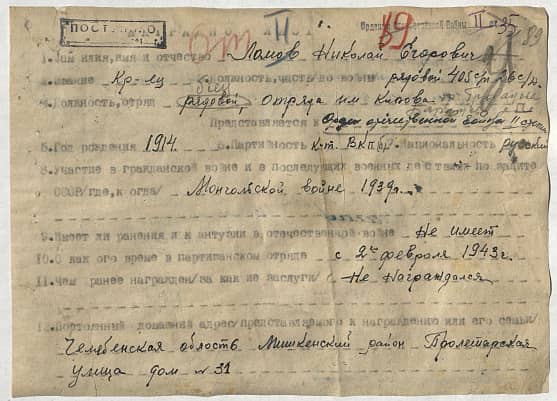 Орден Отечественной Войны II ст 35
НАГРАДНОЙ ЛИСТ
от II 89 89
1. Фамилия, имя и отчество Ломов Николай Егорович
2. Звание Кр-ец 3. Должность, часть во войны рядовой 405 с/п
4. Должность, отряд рядовой боец Отряда им Кирова
Представляется к Орден отечественной войны II степени
5. Год рождения 1914. 6. Партийность к-т. ВКП(б) 7. Национальность русский
8. Участие в гражданской войне и в последующих военных действиях по защите
СССР/где, когда/ Монгольской войне 1939г.
9. Имеет ли ранения и контузии в отечественной войне Не имеет
10. С какого время в партизанском отряде с 2го февраля 1943г.
11. Чем ранее награжден/за какие заслуги/ Не Награждался
12. Постоянный домашний адрес/представляемого к награждению или его семьи/
Челябенская область Мишкенский район Пролетарская
улица дом № 31